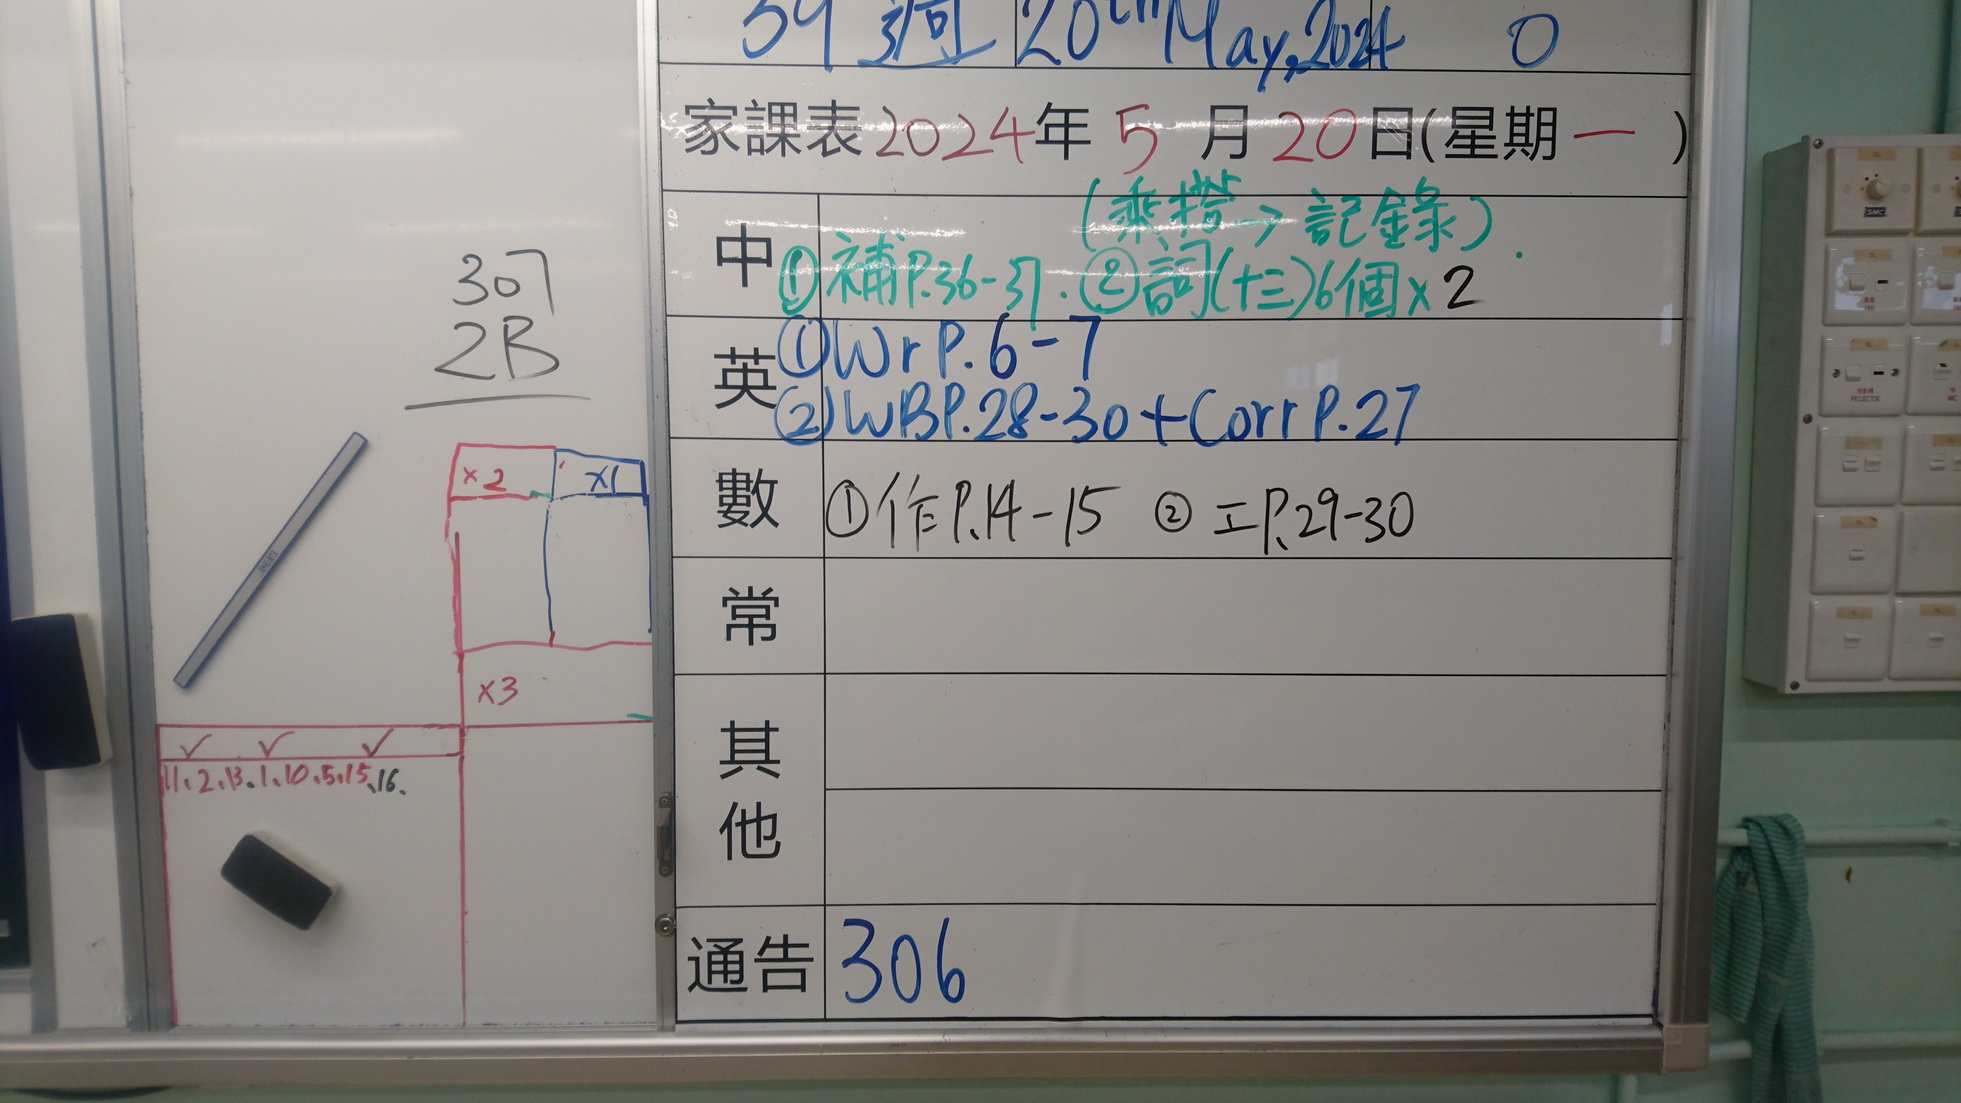 39 週 20th May, 2024 0
家課表2024年 5 月20日(星期一)
(乘搭→記錄).
中 ①補P.36-37. ②詞(十三)6個x2
英 ①Wr P.6-7
②WB P.28-30+Corr P.27
數 ①作P.14-15 ②工P.29-30
常
其他
通告 306
307
2B
x2 x1
x3
✓ ✓ ✓
11、2、13、1、10、5、15、16、
PROJECTOR